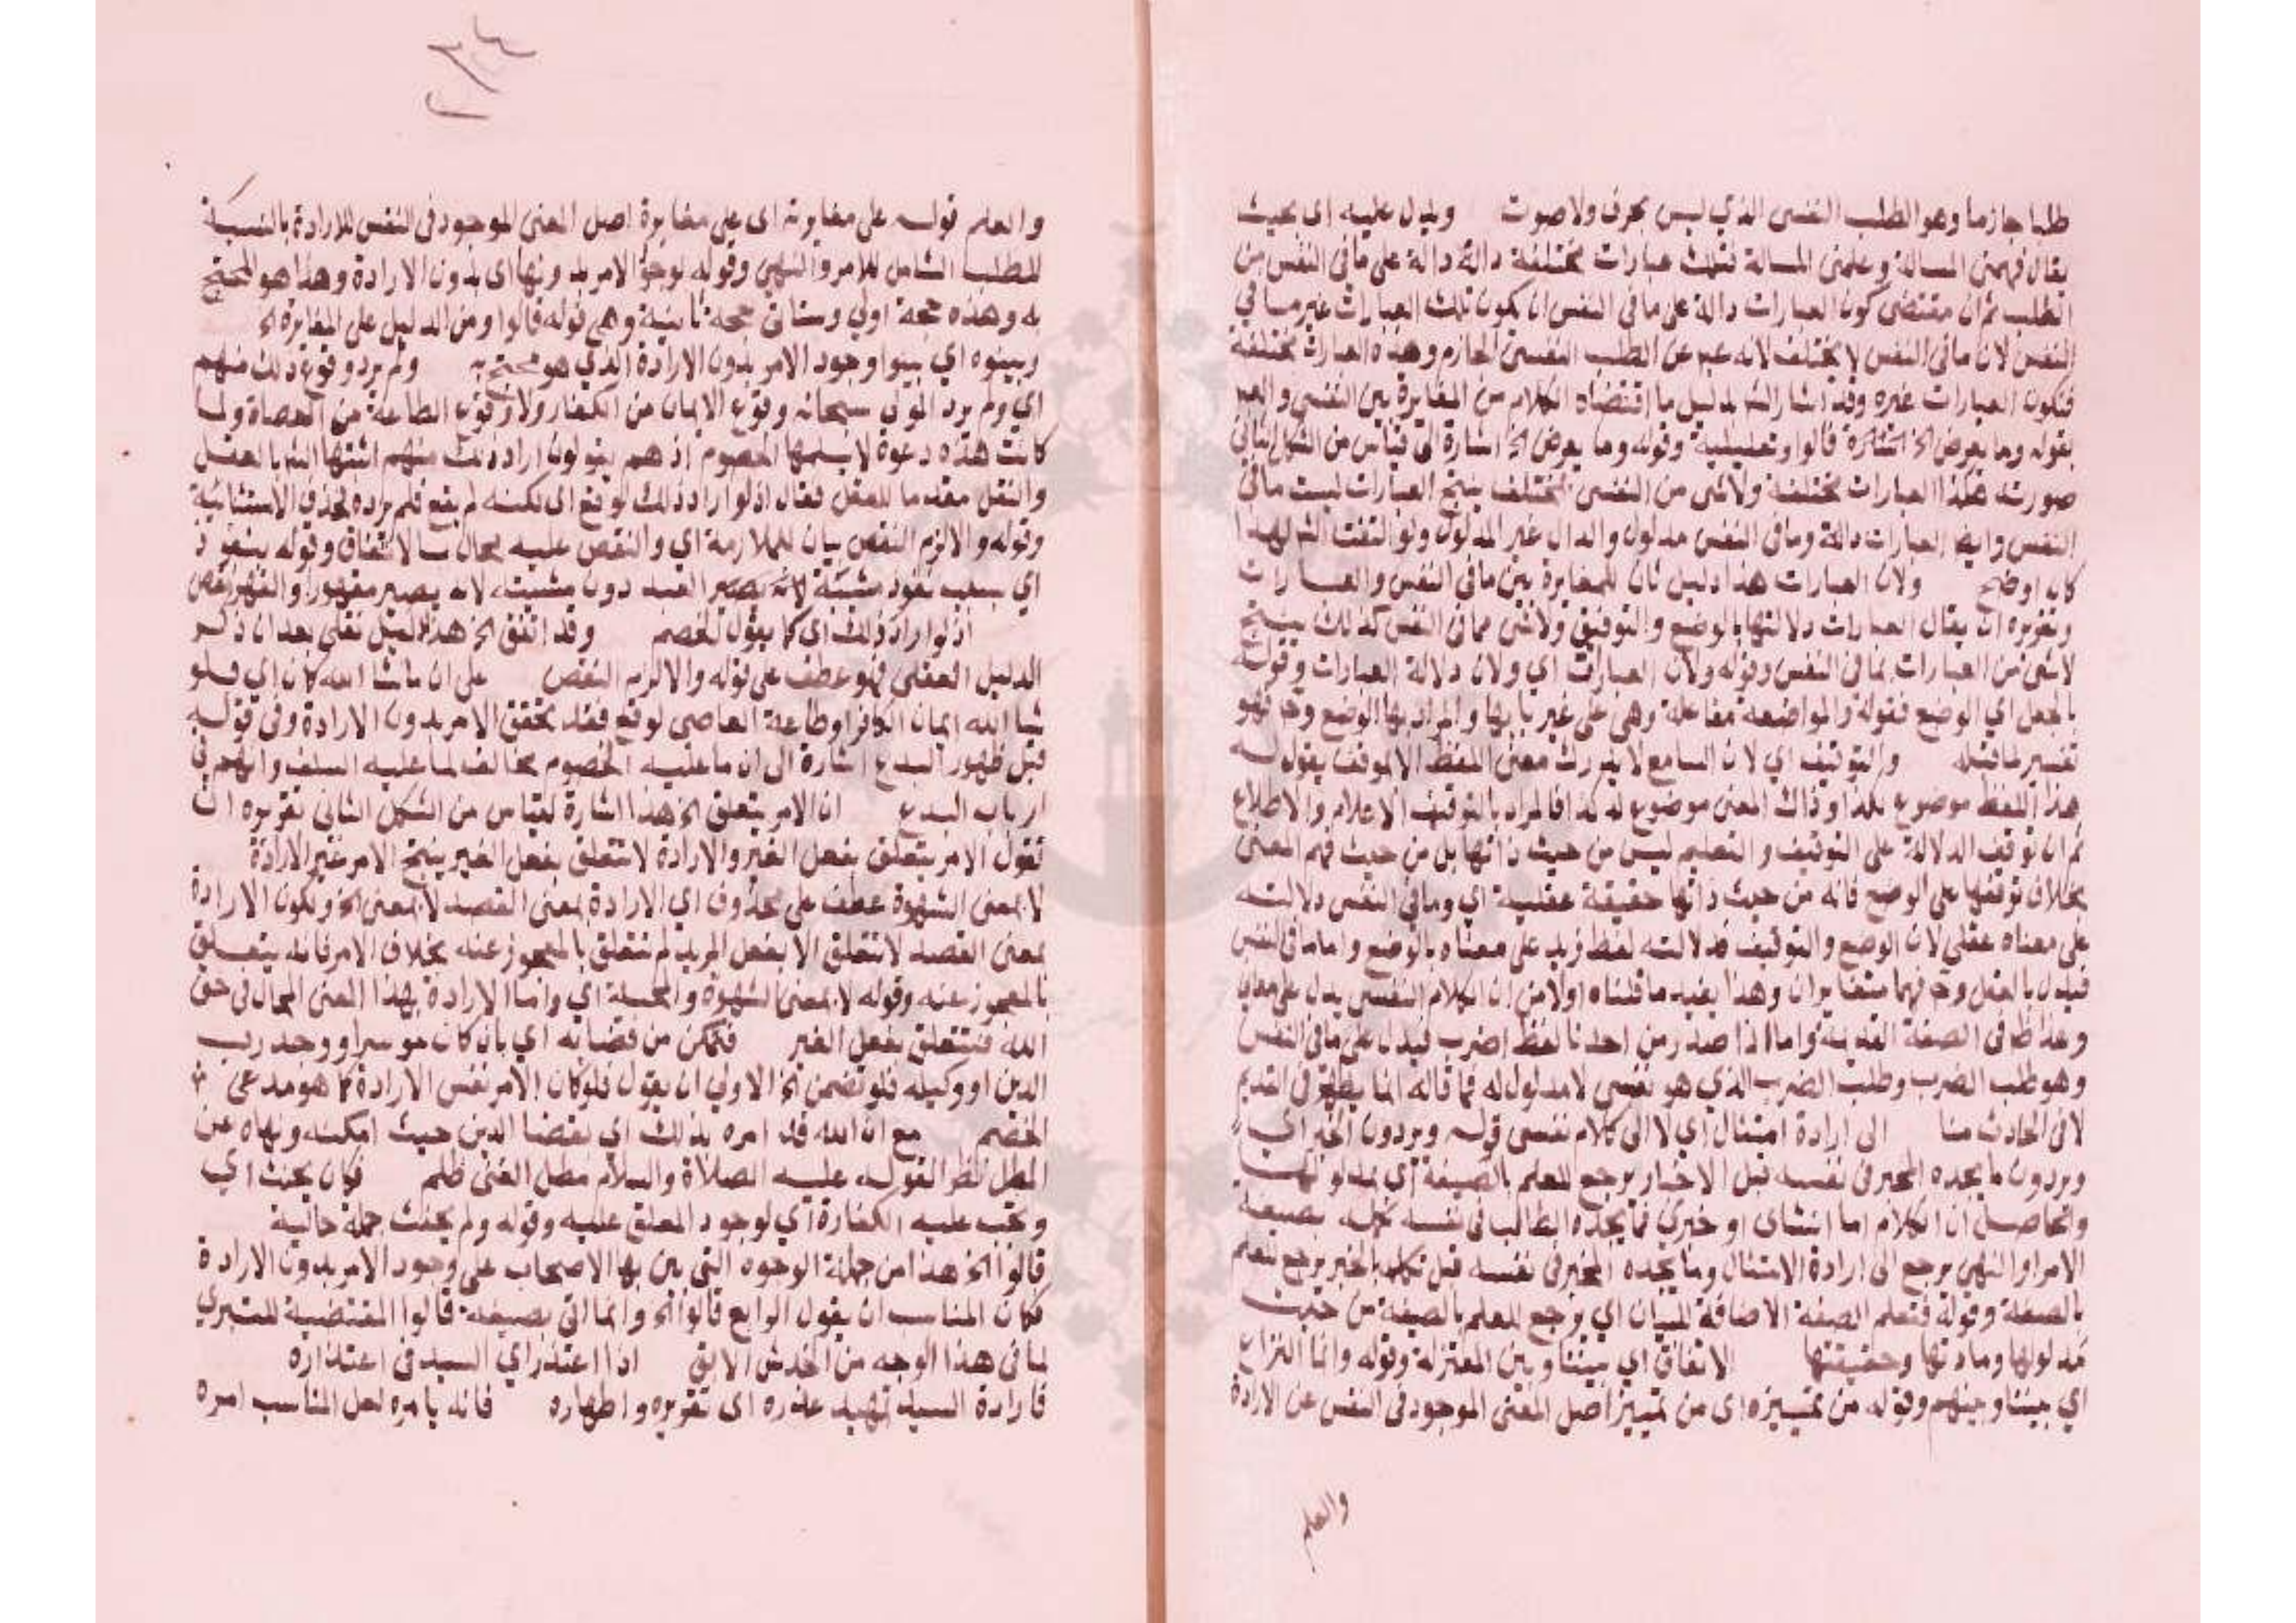 طلبا جازما وهو الطلب النفسى الذي ليس بحرف ولا صوت ويدل عليه اى بحيث
يقال فهمنى المسالة وعلمنى المسالة فتلك عبارات مختلفة دالة دالة على ما فى النفس من
الطلب ثم ان مقتضى كون العبارات دالة على ما فى النفس ان يكون تلك العبارات غير ما في
النفس لان ما فى النفس لا يختلف لانه عبر عن الطلب النفسى الجازم وهذه العبارات مختلفة
فتكون العبارات غيره وقد اشار الى دليل ما اقتضاه الكلام من المغايرة بين النفسي و
بقوله وما يعرض الخ قالوا وتعليلية وقوله وما يعرض الخ اشارة الى قياس من الشكل الثانى
صورته هكذا العبارات مختلفة ولا شى من النفسى بمختلف ينتج العبارات ليست ما فى
النفس وايضا العبارات دالة وما فى النفس مدلول والدال غير المدلول ولو التفت لهذا
كان اوضح ولان العبارات هذا دليل ثان للمغايرة بين ما فى النفس والعبارات
وتقريره ان يقال العبارات دلالتها بالوضع والتوقيف ولا شى مما فى النفس كذلك ينتج
لا شى من العبارات بما فى النفس وقوله ولان العبارات اي ولان دلالة العبارات وقوله
بالجعل اي الوضع فقوله والمواضعة مفاعلة وهى على غير بابها والمراد بها الوضع وح فهو
تفسير ما قبله والتوقيف اي لان السامع لا يدرك معنى اللفظ الا بموقف يقول له
هذا اللفظ موضوع لكذا وذاك المعنى موضوع له كذا فالمراد بالتوقيف الاعلام والاطلاع
ثم ان توقف الدلالة على التوقيف والتعليم ليس من حيث ذاتها بل من حيث فهم المعنى
بخلاف توقفها على الوضع فانه من حيث ذاتها حقيقة عقلية اي وما في النفس دلالته
على معناه عقلي لان الوضع والتوقيف فدلالته لفظ زيد على معناه بالوضع واما ما فى النفس
فيدل بالعقل وح فهما متغايران وهذا يفيد ما قلناه اولا من ان الكلام النفسى يدل على معان
وهذا ظ فى الصفة القديمة واما اذا صدر من احدنا لفظ اضرب فيدل على ما فى النفس
وهو طلب الضرب وطلب الضرب الذي هو نفسى لا مدلول له فما قاله انما يظهر فى القديم
لا فى الحادث منا الى ارادة امتثال اي لا الى كلام نفسى قوله ويردون الخبر اي
ويردون ما يجده المخبر فى نفسه قبل الاخبار يرجع للعلم بالصيغة اي بمدلولها
والحاصل ان الكلام اما انشاى او خبري فما يجده الطالب فى نفسه قبل بصيغة
الامر او النهى يرجع الى ارادة الامتثال وما يجده المخبر فى نفسه قبل تكلمه بالخبر يرجع للعلم
بالصيغة وقوله فتعلم الصفة الاضافة للبيان اي يرجع للعلم بالصيغة من حيث
مدلولها ومادتها وحقيقتها الاتفاق اي بيننا وبين المعتزلة وقوله وانما النزاع
اي بيننا وبينهم وقوله من تمييزه اى من تمييز اصل المعنى الموجود فى النفس عن الارادة
والعلم
والعلم قوله على مغايرته اى على مغايرة اصل المعنى الموجود فى النفس للارادة بالنسبة
للطلب الشامل للامر والنهى وقوله لوجود الامر بدونها اى بدون الارادة وهذا هو المحتج
به وهذه حجة اولى وستاتى حجة ثانية وهى قوله قالوا ومن الدليل على المغايرة الخ
وبينوه اي بينوا وجود الامر بدون الارادة الذي هو محتج به ولم يرد وقوع ذلك منهم
اي ولم يرد المولى سبحانه وقوع الايمان من الكفار ولا وقوع الطاعة من العصاة ولما
كانت هذه دعوة لا يسلمها الخصوم اذ هم يقولون اراد ذلك منهم اثبتها بالعقل
والنقل مقدما للعقل فقال اذ لو اراد ذلك لوقع اى لكنه لم يقع فلم يرده بحذف الاستثنائية
وقوله والا لزم النقص بيان للملازمة اي والنقص عليه محال بالاتفاق وقوله بنفوذ
اي بسبب نفوذ مشيئة العبد دون مشيئته لانه يصير مقهورا والقهر نقص
اذ لو اراد ذلك اى كما يقول الخصم وقد اتفق الخ هذا دليل نقلي بعد ان ذكر
الدليل العقلى فهو عطف على قوله والا لزم النقص على ان ما شا الله كان اي فلو
شا الله ايمان الكافر او طاعة العاصى لوقع فقد تحقق الامر بدون الارادة وفى قوله
قبل ظهور البدع اشارة الى ان ما عليه الخصوم مخالف لما عليه السلف وانهم
ارباب البدع ان الامر يتعلق الخ هذا اشارة لقياس من الشكل الثانى تقريره ان
تقول الامر يتعلق بفعل الغير والارادة لا تتعلق بفعل الغير ينتج الامر غير الارادة
لا بمعنى الشهوة عطف على محذوف اي الارادة بمعنى القصد لا بمعنى الخ ولكون الارادة
بمعنى القصد لا تتعلق الا بفعل المريد لم تتعلق بالمعجوز عنه بخلاف الامر فانه يتعلق
بالمعجوز عنه وقوله لا بمعنى الشهوة والمحبة اي واما الارادة بهذا المعنى المحال فى حق
الله فتتعلق بفعل الغير فتمكن من قضائه اي بان كان موسرا ووجد رب
الدين او وكيله فلو تضمن الخ الاولى ان يقول فلو كان الامر نفس الارادة كما هو مدعى
الخصم مع ان الله قد امره بذلك اي بقضا الدين حيث امكنه ونهاه عن
المطل نظر القوله عليه الصلاة والسلام مطل الغنى ظلم فكان يحنث اي
وتجب عليه الكفارة اي لوجود المعلق عليه وقوله ولم يحنث جملة حالية
قالوا الخ هذا من جملة الوجوه التى بين بها الاصحاب على وجود الامر بدون الارادة
فكان المناسب ان يقول الرابع قالوا الخ وانما اتى بصيغة قالوا المقتضية للتبرى
لما فى هذا الوجه من الخدش الاتى اذا اعتذر اي السيد فى اعتذاره
فارادة السيد تمهيد عذره اى تقريره واظهاره فانه يامره لعل المناسب امره